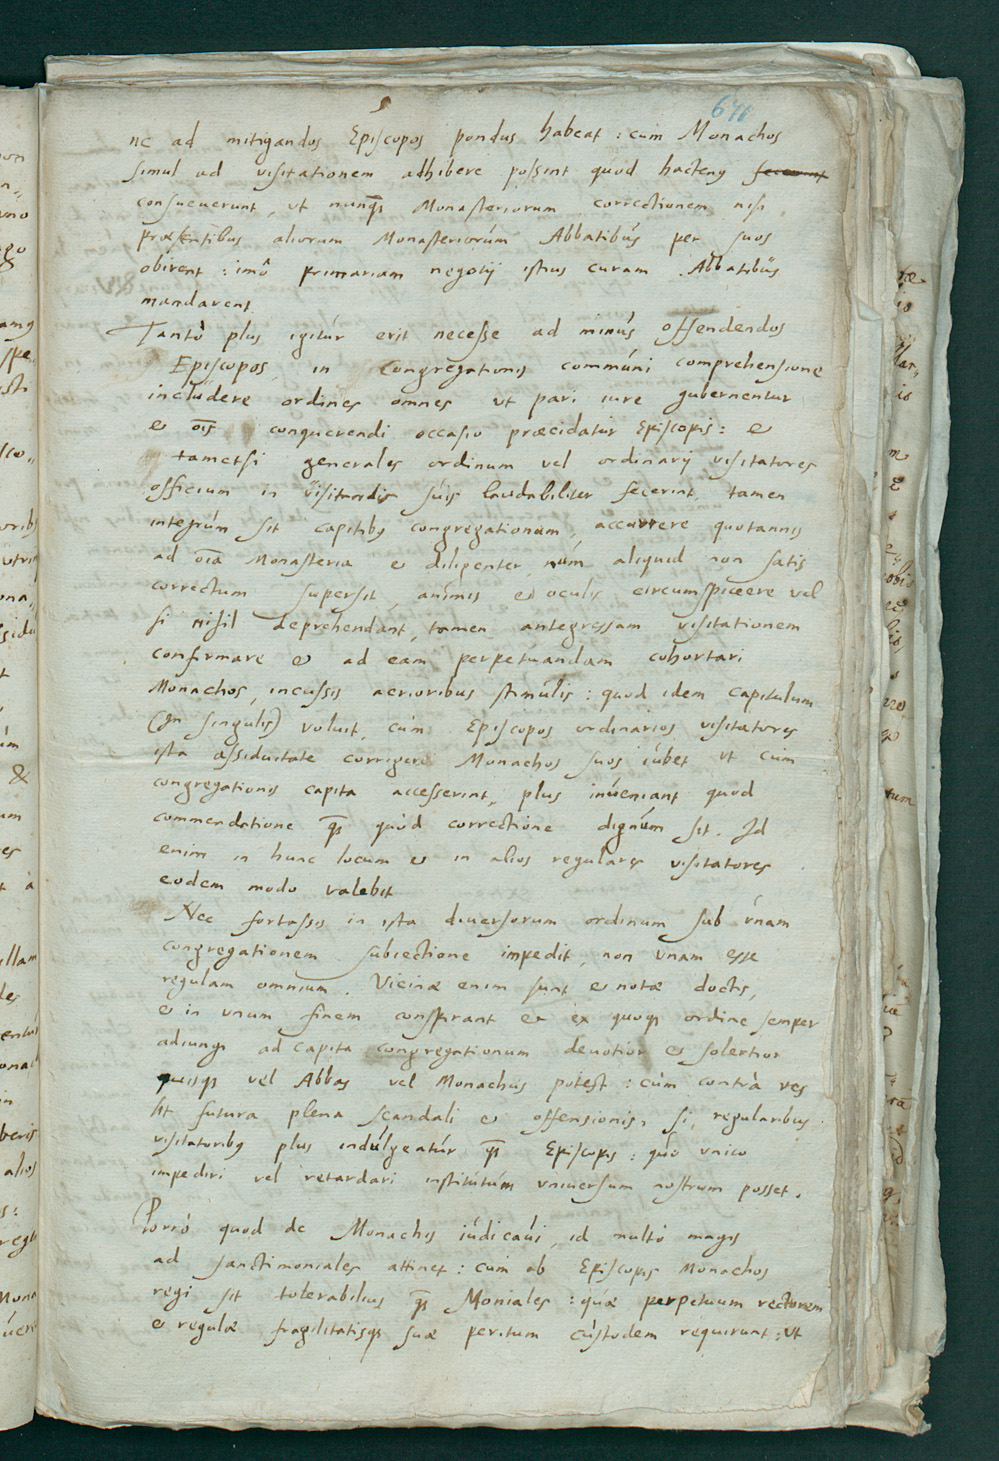 nc ad mitigandos Episcopos pondus habeat : cum Monachos
simul ad visitationem adhibere possint quod hacteng
consueuerunt, vt nunqꝫ Monasteriorum correctionem nisi
præsentibus aliorum Monasteriorúm Abbatibús per suos
obirent : imô primariam negotij istius curam Abbatibús
mandarent.
Tantò plus igitúr erit necesse ad minús offendendos
Episcopos, in Congregationis commúni comprehensione
inclúdere ordines omnes vt pari iure gubernentur
& ois conquerendi occasio præcidatúr Episcopis : &
tametsi generales ordinum vel ordinarij visitatores
officium in visitandis súis laudabiliter fecerint, tamen
integrúm sit capitibg congregationum, accurrere quotannis
ad oia Monasteria & diligenter núm aliquid non satis
correctum supersit, animis & oculis circumspicere vel
si nihil deprehendant, tamen antegressam visitationem
confirmare & ad eam perpetuandam cohortari
Monachos, incussis acrioribus stimúlis : quod idem capitulum
(In singulis) voluit, cúm Episcopos ordinarios visitatores
ista assiduitate corrigere Monachos suos iúbet vt cúm
congregationis capita accesserint, plus inúeniant quod
commendatione qꝫ quòd correctione dignúm sit. Id
enim in hunc locum & in alios regulares visitatores
eodem modo valebit
Nec fortassis in ista diuersorum ordinum sub únam
congregationem subiectione impedit, non vnam esse
regulam omnium. Vicinæ enim sunt & notæ doctis,
& in vnum finem conspirant & ex quoqꝫ ordine semper
adiungi ad capita congregationum deuotior & solertior
quisqꝫ vel Abbas vel Monachús potest : cúm contrà res
sit futura plena scandali & offensionis, si, regularibus
visitatoribg plus indúlgeatúr qꝫ Episcopis : quo vnico
impediri vel retardari institutúm vniuersum nostrum posset.
Porrò quod de Monachis iúdicaúi, id multò magis
ad sanctimoniales attinet : cúm ab Episcopis Monachos
regi sit tolerabilius qꝫ Moniales : quæ perpetuum rectorem
& regulæ fragilitatisqꝫ suæ peritum cústodem requirunt : vt